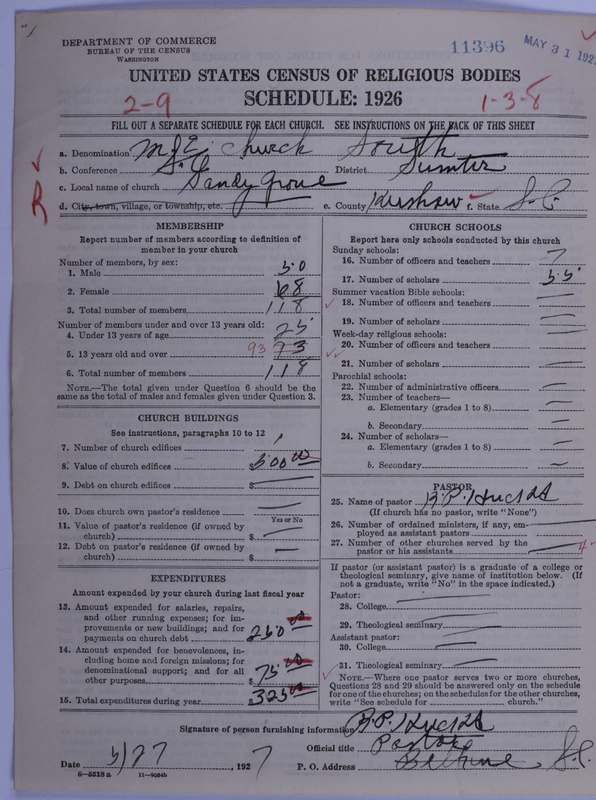 DEPARTMENT OF COMMERCE
BUREAU OF THE CENSUS
WASHINGTON
11396
MAY 31 192
UNITED STATES CENSUS OF RELIGIOUS BODIES
SCHEDULE: 1926
2-9
1-3-8
FILL OUT A SEPARATE SCHEDULE FOR EACH CHURCH. SEE INSTRUCTIONS ON THE BACK OF THIS SHEET
a. Denomination M. E. Church South
b. Conference S. C. District Sumter
c. Local name of church Sandy Grove
R
d. City, town, village, or township, etc. e. County Kershaw f. State S. C.
MEMBERSHIP
Report number of members according to definition of
member in your church
Number of members, by sex:
1. Male 50
2. Female 68
3. Total number of members 118
Number of members under and over 13 years old:
4. Under 13 years of age 25
5. 13 years old and over 93 73
6. Total number of members 118
NOTE.—The total given under Question 6 should be the
same as the total of males and females given under Question 3.
CHURCH BUILDINGS
See instructions, paragraphs 10 to 12
7. Number of church edifices 1
8. Value of church edifices $500 00
9. Debt on church edifices $ —
10. Does church own pastor's residence? —
Yes or No
11. Value of pastor's residence (if owned by
church) $ —
12. Debt on pastor's residence (if owned by
church) $ —
EXPENDITURES
Amount expended by your church during last fiscal year
13. Amount expended for salaries, repairs,
and other running expenses; for im-
provements or new buildings; and for
payments on church debt $250 00
14. Amount expended for benevolences, in-
cluding home and foreign missions; for
denominational support; and for all
other purposes $75 00
15. Total expenditures during year $325 00
CHURCH SCHOOLS
Report here only schools conducted by this church
Sunday schools:
16. Number of officers and teachers 7
17. Number of scholars 55
Summer vacation Bible schools:
18. Number of officers and teachers —
19. Number of scholars —
Week-day religious schools:
20. Number of officers and teachers —
21. Number of scholars —
Parochial schools:
22. Number of administrative officers —
23. Number of teachers—
a. Elementary (grades 1 to 8) —
b. Secondary —
24. Number of scholars—
a. Elementary (grades 1 to 8) —
b. Secondary —
PASTOR
25. Name of pastor
(If church has no pastor, write "None")
26. Number of ordained ministers, if any, em-
ployed as assistant pastors —
27. Number of other churches served by the
pastor or his assistants — 4
If pastor (or assistant pastor) is a graduate of a college or
theological seminary, give name of institution below. (If
not a graduate, write "No" in the space indicated.)
Pastor:
28. College —
29. Theological seminary —
Assistant pastor:
30. College —
31. Theological seminary —
NOTE.—Where one pastor serves two or more churches,
Questions 28 and 29 should be answered only on the schedule
for one of the churches; on the schedules for the other churches,
write "See schedule for church."
Signature of person furnishing information
Official title Pastor
Date 5/27, 1927 P. O. Address Bethune S. C.
6—5518a 11—9054b